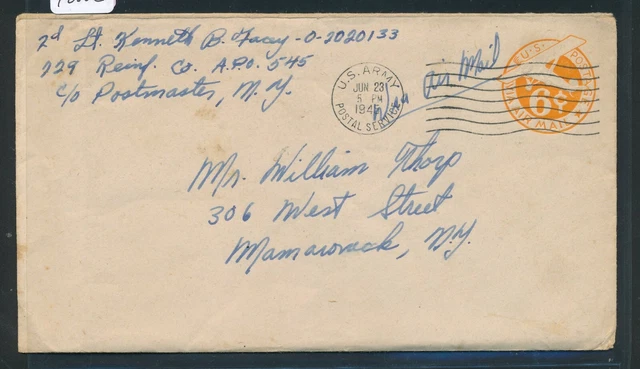 2d Lt. Kenneth B. Facey - O-2020133
229 Reinf. Co. A.P.O. 545
c/o Postmaster, N.Y.
U.S. ARMY
JUN 23
5 PM
1945
POSTAL SERVICE
Via air Mail
U.S. POSTAGE
6
AIR MAIL
Mr. William Thorp
306 West Street
Mamaroneck, N.Y.